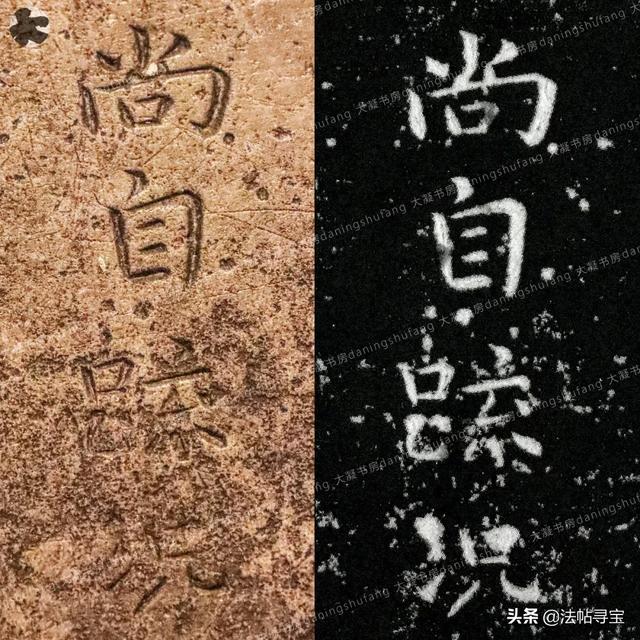 尚
自
况
尚
自
况
大凝书房daningshufang
头条@法帖寻宝